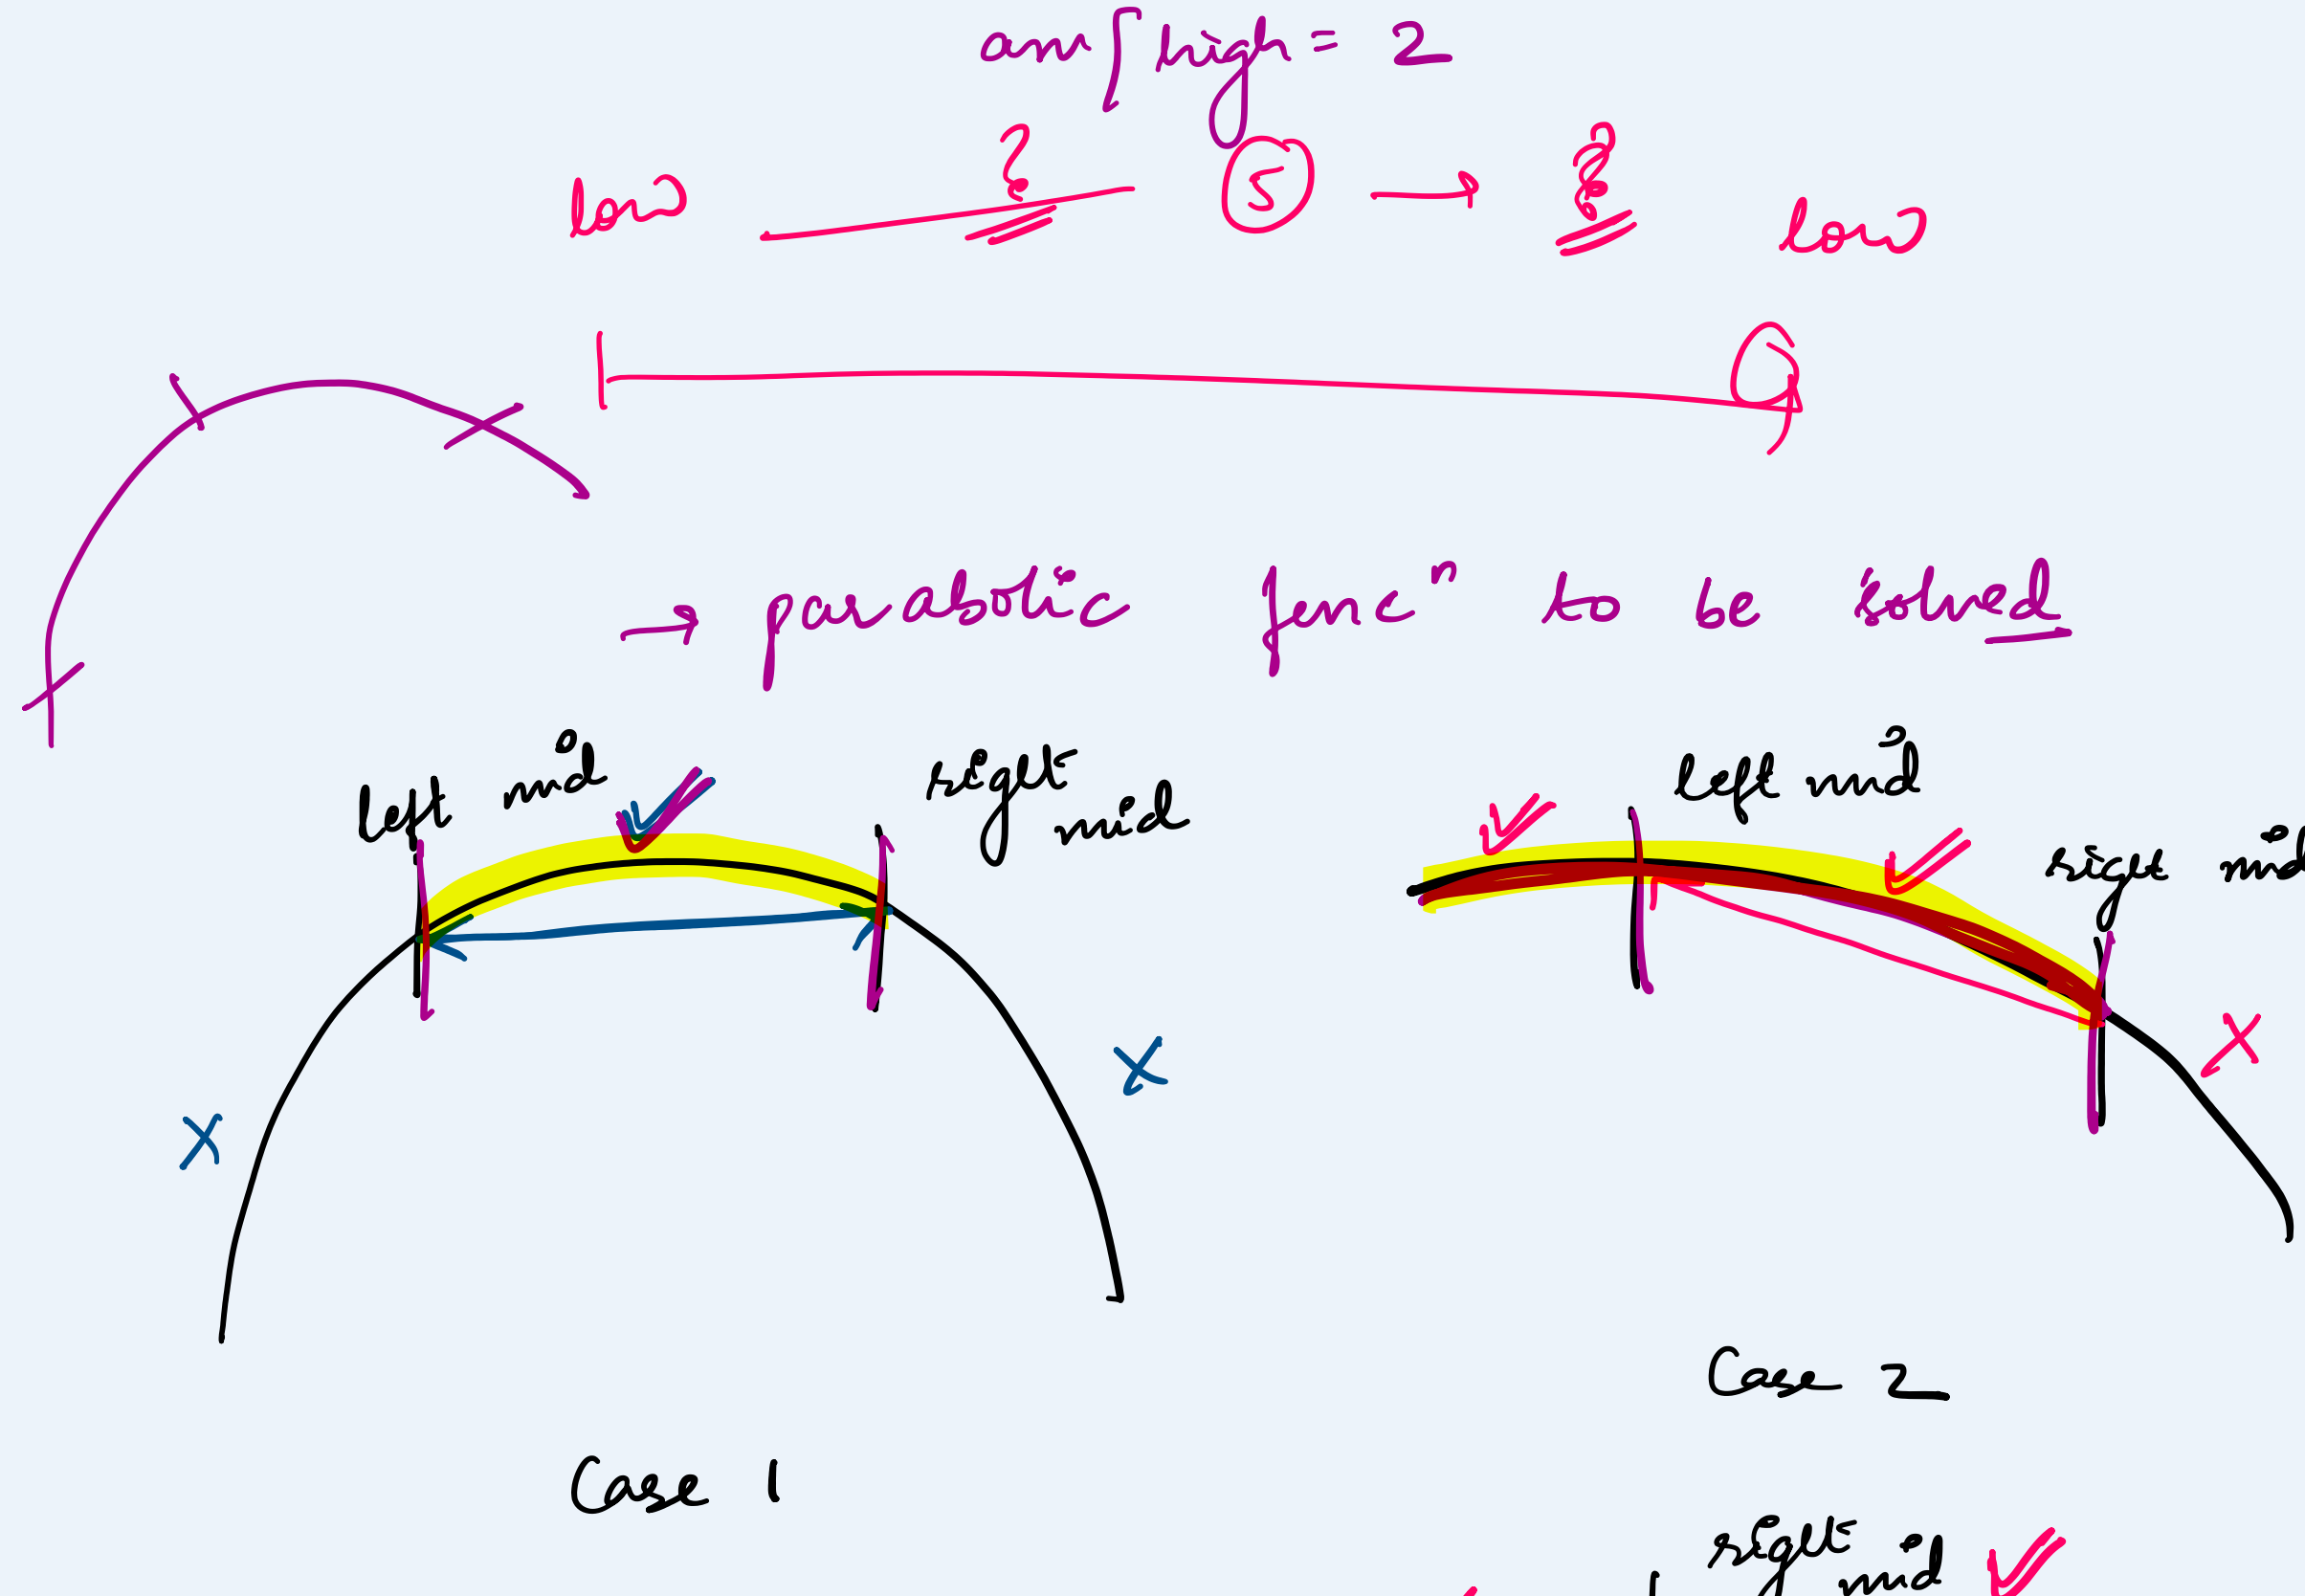 any high = 2
low 2 5 → 8 low
→ parabolic funcⁿ to be solved
left mid
right mid
left mid
right mid
Case 2
Case 1
right mid